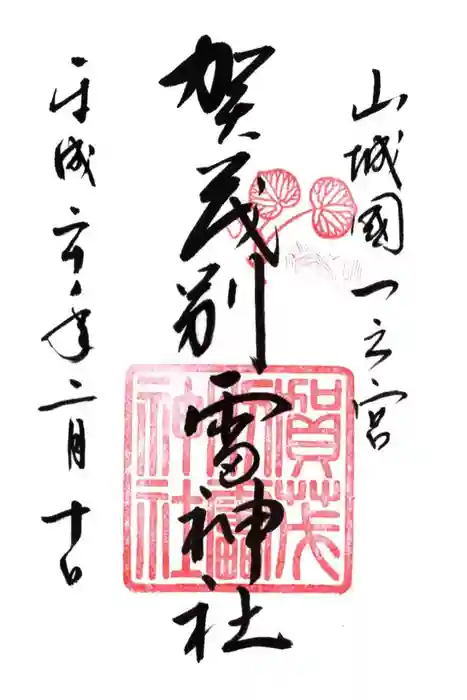 山城國一之宮
賀茂別雷神社
賀茂別雷神社
二月十日